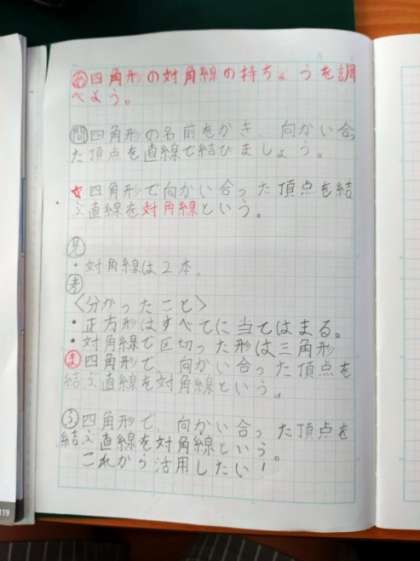 ㋱四角形の対角線の特ちょうを調
べよう。
問四角形の名前をかき、向かい合っ
た頂点を直線で結びましょう。
☆四角形で向かい合った頂点を結
ぶ直線を対角線という。
見
・対角線は2本。
考
〈分かったこと〉
・正方形はすべてに当てはまる。
・対角線で区切った形は三角形
ま四角形で、向かい合った頂点を
結ぶ直線を対角線という。
ふ四角形で、向かい合った頂点を
結ぶ直線を対角線という。
これから活用したい!
119